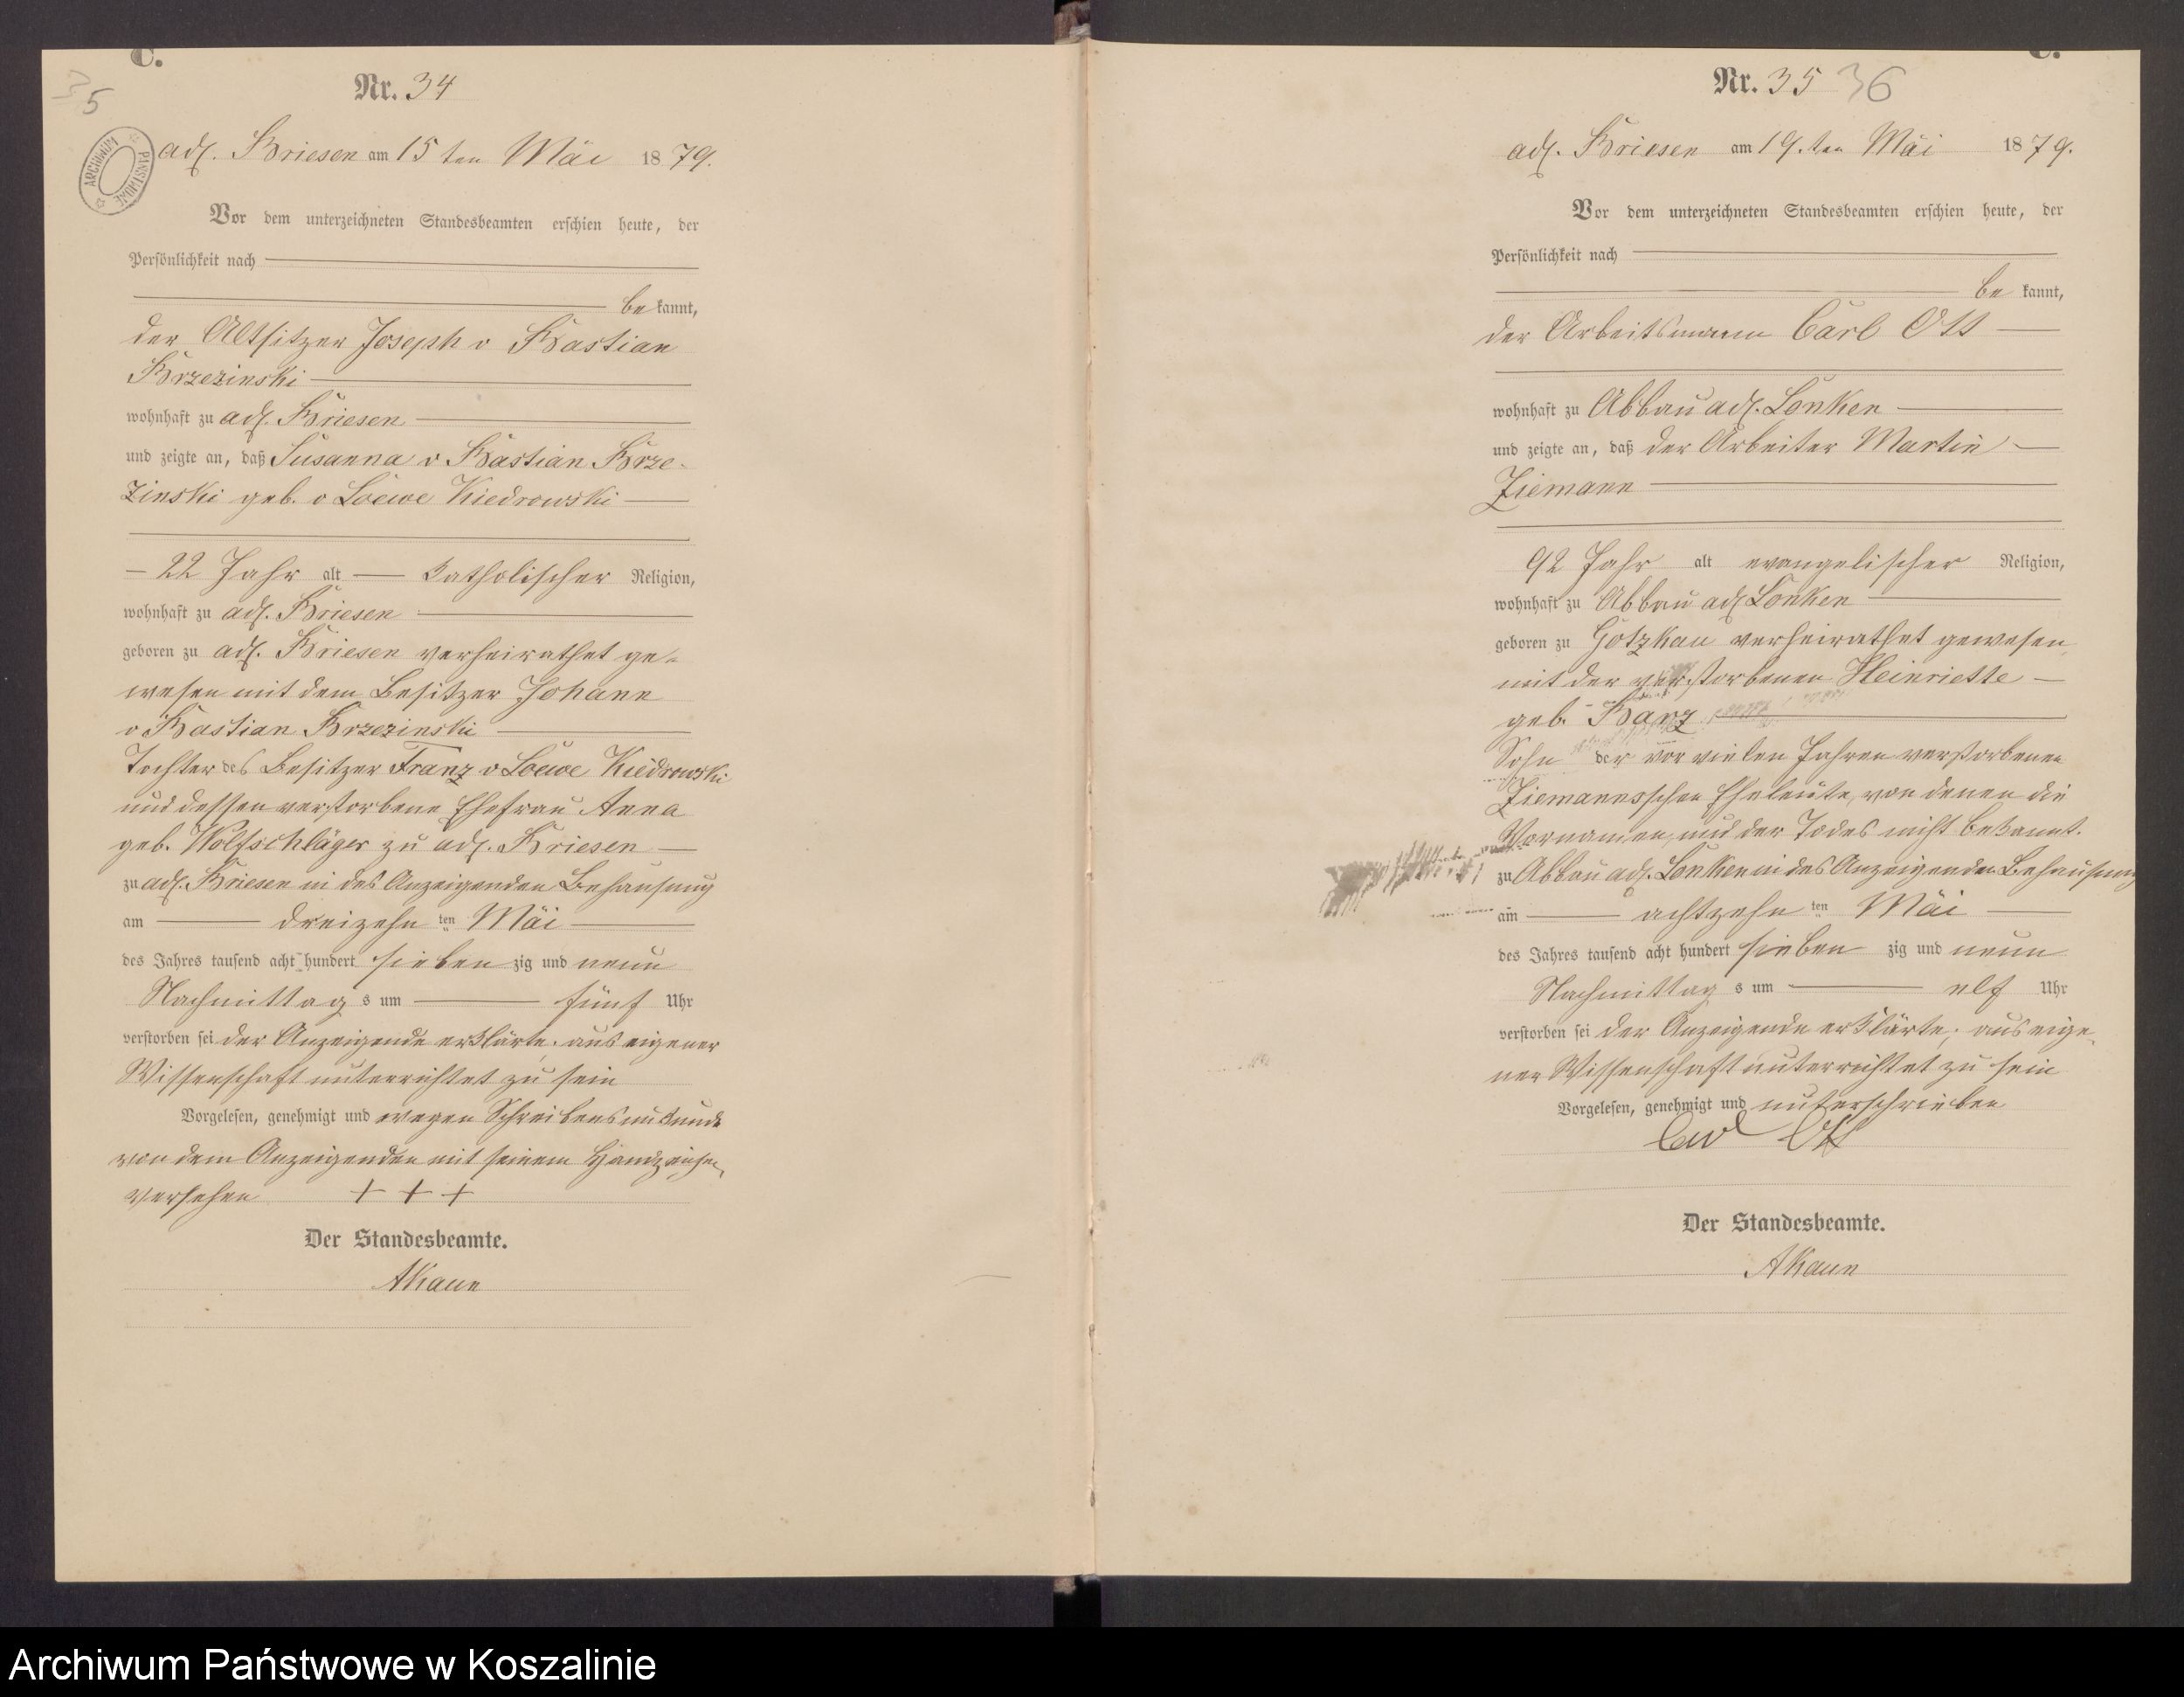 C.
35
Nr. 34
ARCHIWUM PAŃSTWOWE
adl. Briesen am 15 ten Mai 1879.
Vor dem unterzeichneten Standesbeamten erschien heute, der
Persönlichkeit nach
be kannt,
der Altsitzer Joseph v Bastian
Brzezinski
wohnhaft zu adl. Briesen
und zeigte an, daß Susanna v Bastian Brze-
zinski geb. v Loewe Kiedrowski
22 Jahr alt katholischer Religion,
wohnhaft zu adl. Briesen
geboren zu adl. Briesen verheirathet ge-
wesen mit dem Besitzer Johann
v Bastian Brzezinski
Tochter des Besitzer Franz v Loewe Kiedrowski
und dessen verstorbene Ehefrau Anna
geb. Woltschläger zu adl. Briesen
zu adl. Briesen in des Anzeigenden Behausung
am dreizehn ten Mai
des Jahres tausend acht hundert sieben zig und neun
Nachmittag s um fünf Uhr
verstorben sei der Anzeigende erklärte, aus eigener
Wissenschaft unterrichtet zu sein
Vorgelesen, genehmigt und wegen Schreibensunkunde
von dem Anzeigenden mit seinem Handzeichen
versehen + + +
Der Standesbeamte.
AKaun
C.
Nr. 35 36
adl. Briesen am 19. ten Mai 1879.
Vor dem unterzeichneten Standesbeamten erschien heute, der
Persönlichkeit nach
be kannt,
der Arbeitsmann Carl Ott
wohnhaft zu Abbau adl. Lonken
und zeigte an, daß der Arbeiter Martin
Ziemann
92 Jahr alt evangelischer Religion,
wohnhaft zu Abbau adl Lonken
geboren zu Gotzkau verheirathet gewesen
mit der verstorbenen Heinriette
geb. Banz
Sohn der vor vielen Jahren verstorbenen
Ziemannsschen Eheleute, von denen die
Vornamen, und der Todes nicht bekannt.
zu Abbau adl. Lonken in des Anzeigenden Behausung
am achtzehn ten Mai
des Jahres tausend acht hundert sieben zig und neun
Nachmittag s um elf Uhr
verstorben sei der Anzeigende erklärte, aus eige-
ner Wissenschaft unterrichtet zu sein
Vorgelesen, genehmigt und unterschrieben
Carl Ott
Der Standesbeamte.
AKaun
Archiwum Państwowe w Koszalinie